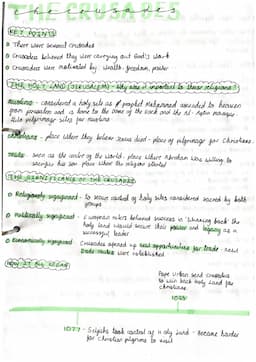 THE CRUSADES
KEY POINTS
There were several crusades
Crusaders believed they were carrying out God's work
Crusades were motivated by wealth, freedom, power
THE HOLY LAND (JERUSALEM) - why was it important to these religions?
Muslims - considered a holy site as prophet Muhammad ascended to heaven
from Jerusalem and is home to the Dome of the Rock and the Al-Aqsa mosque
It's pilgrimage sites for muslims
Christians - place where they believe Jesus died - place of pilgrimage for Christians.
seen as the center of the world - place where Abraham was willing to
sacrifice his son, place where the religion started
THE SIGNIFICANCE OF THE CRUSADES
Religiously significant - To secure control of holy sites considered sacred by both
groups
Politically significant - European rulers believed success in 'winning back' the
holy land would secure their power and legacy as a
successful leader
Economically significant - Crusades opened up new opportunities for trade - new
trade routes were established
HOW IT ALL BEGAN
Pope Urban send crusades
to win back holy land for
christians
1095
1077 - Seljuks took control of holy land - became harder
for christian pilgrims to visit